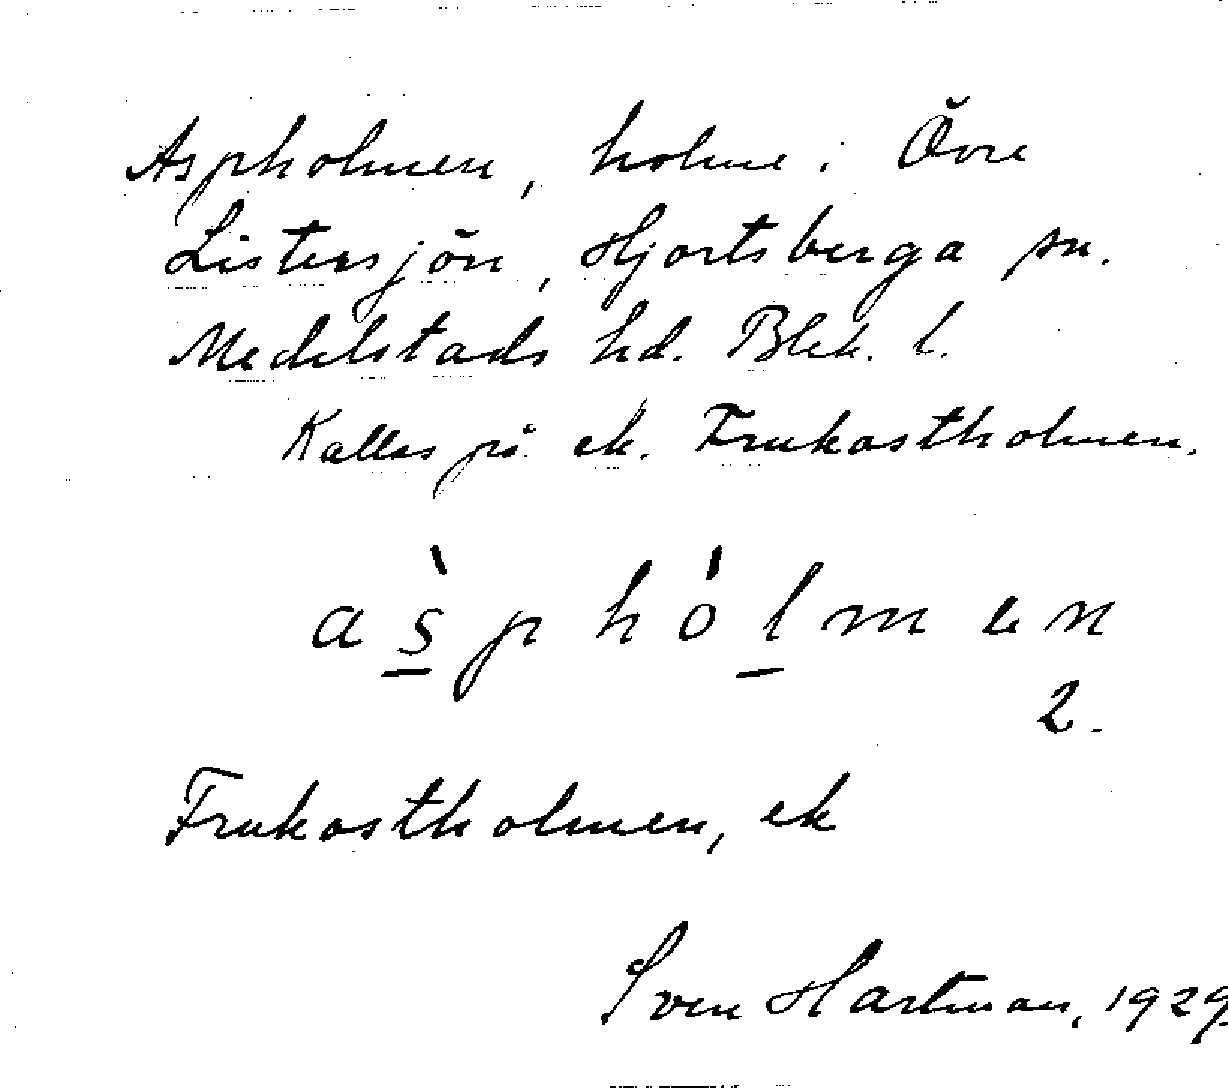 Aspholmen, holme i Övre
Listersjön, Hjortsberga sn.
Medelstads hd. Blek. l.
Kallas på ek. Frukostholmen.
as̲̀phól̲men
2.
Frukostholmen, ek
Sven Hartman, 1929.